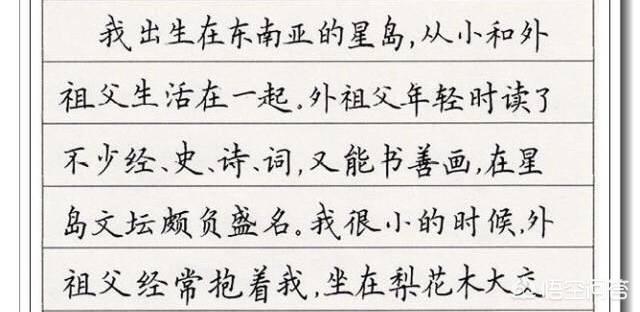 我出生在东南亚的星岛,从小和外
祖父生活在一起。外祖父年轻时读了
不少经、史、诗、词,又能书善画,在星
岛文坛颇负盛名。我很小的时候,外
祖父经常抱着我,坐在梨花木大交
悟空问答